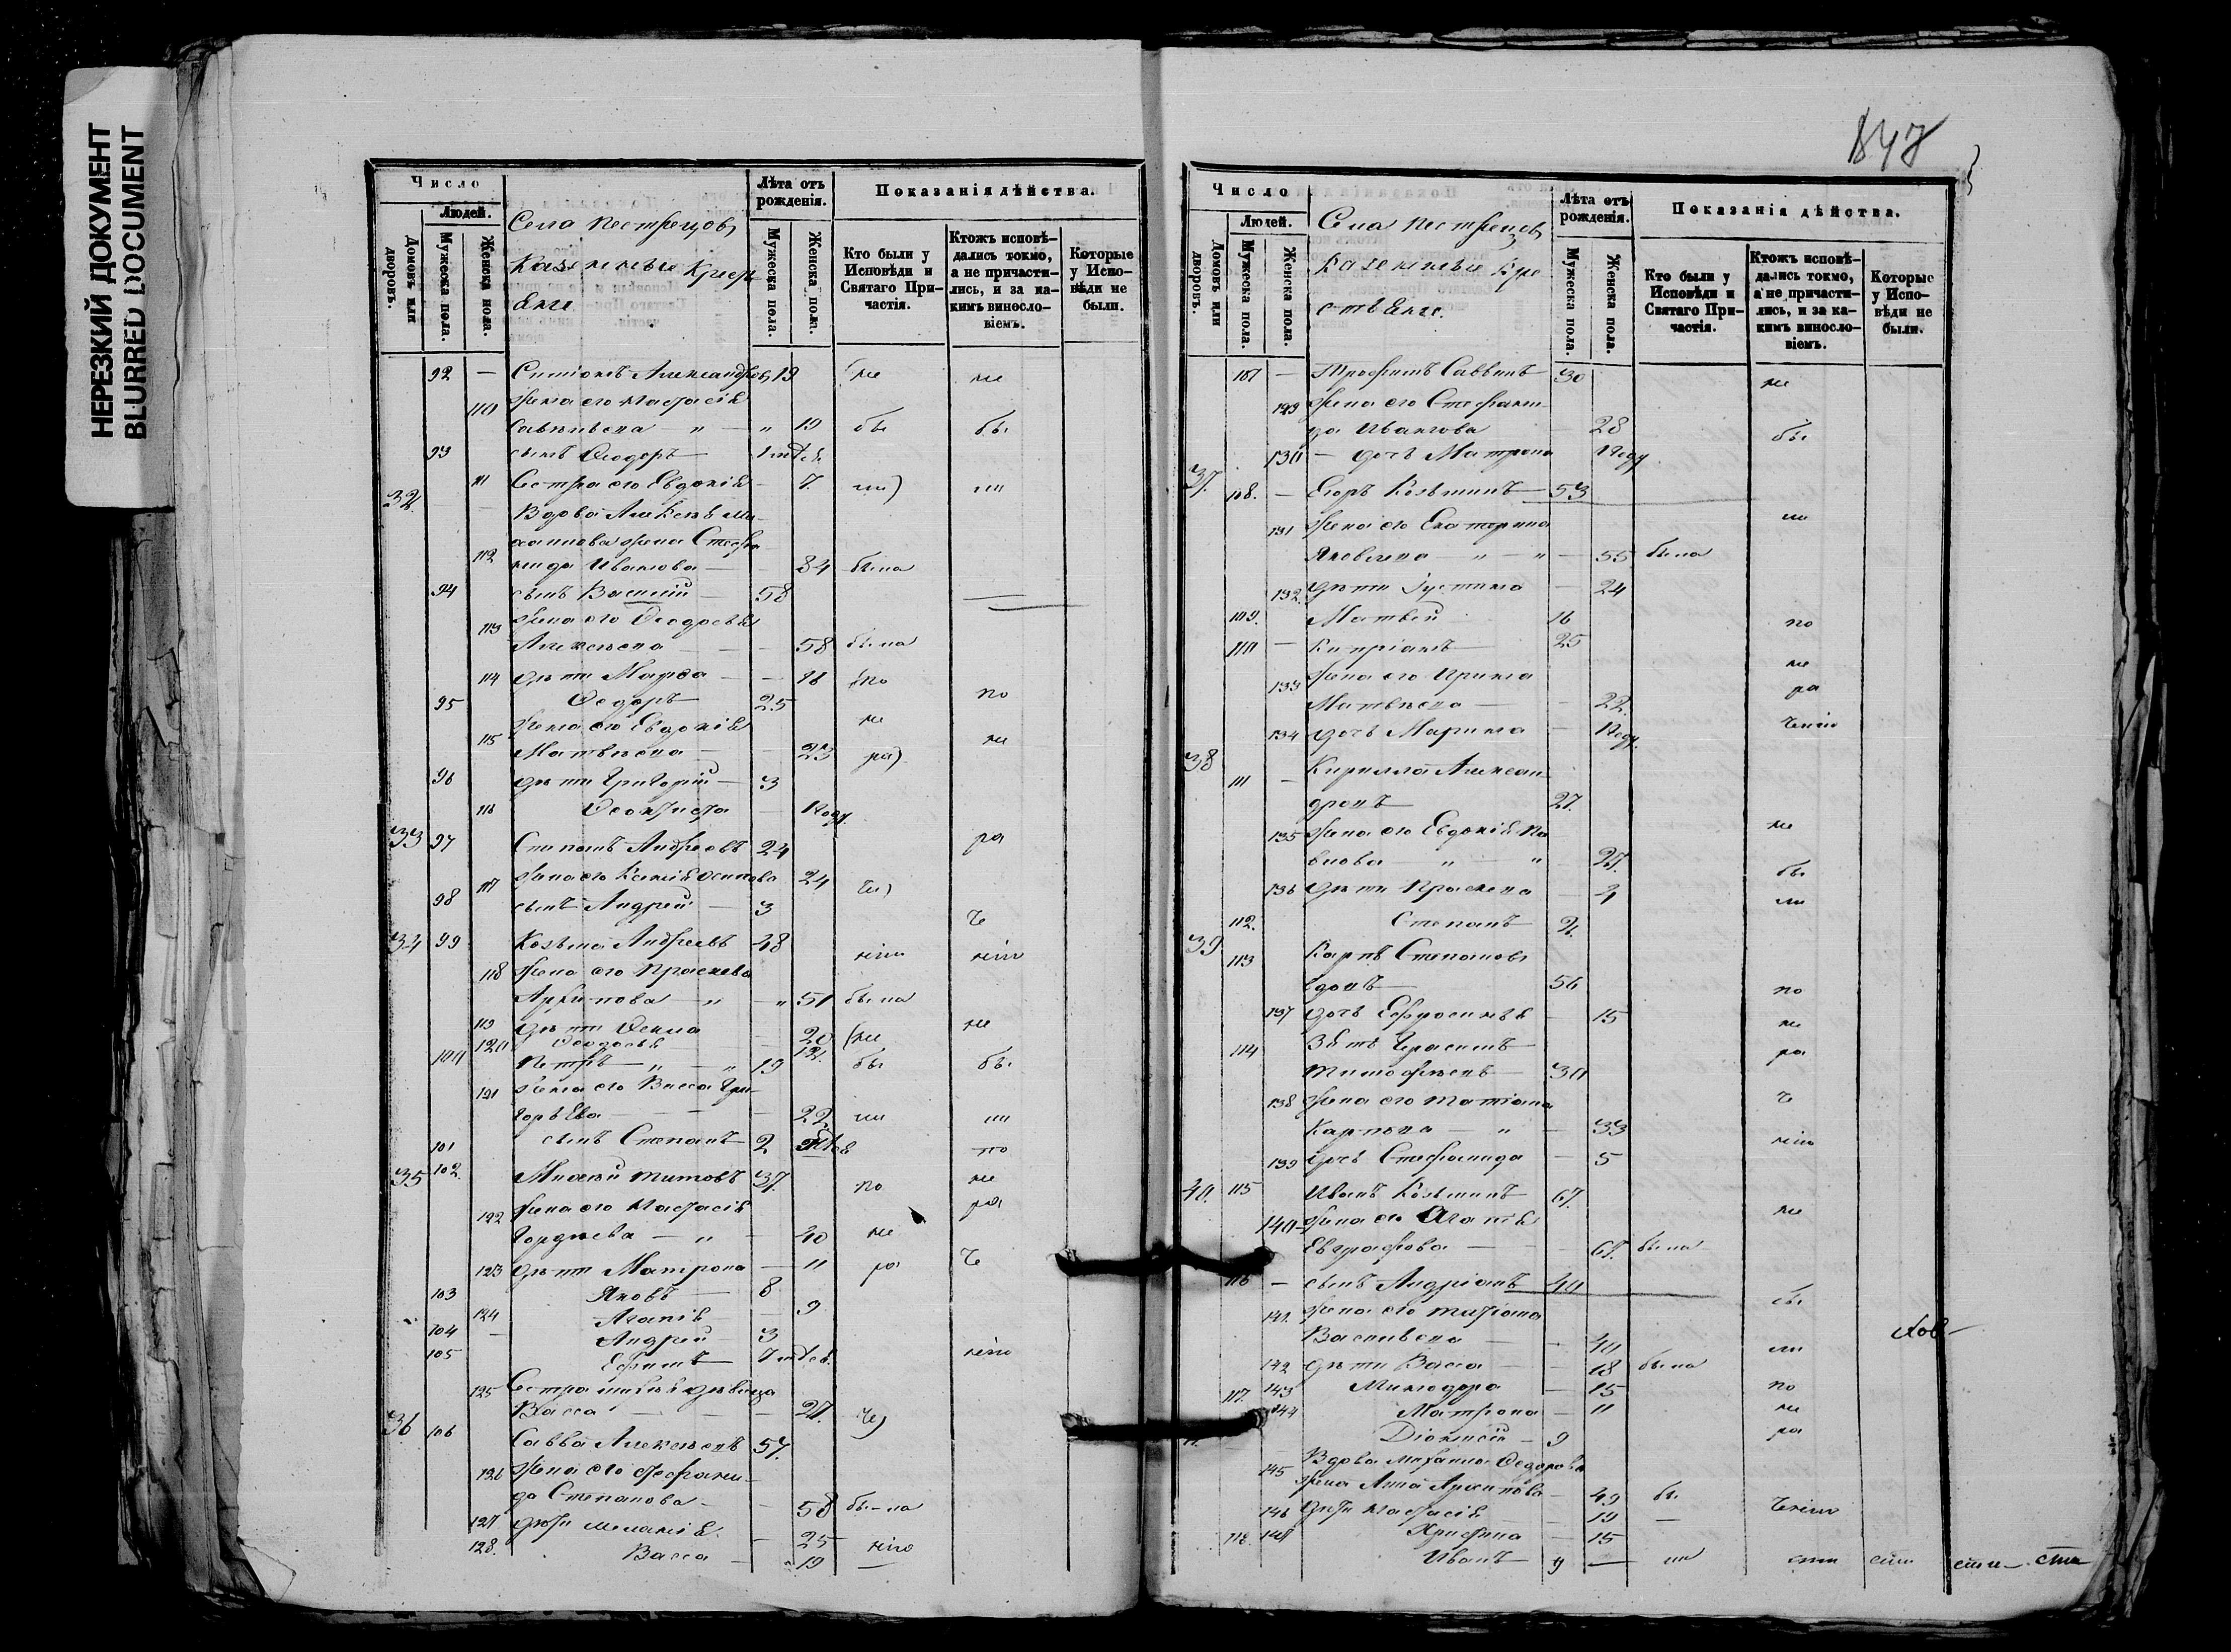 НЕРЕЗКИЙ ДОКУМЕНТ
BLURRED DOCUMENT
Число
Людей.
Домовъ или дворовъ.
Мужеска пола.
Женска пола.
Села Пестрецовъ
Казенные Кресть
яне
Лѣта отъ рожденія.
Мужеска пола.
Женска пола.
Показанія дѣйства.
Кто были у Исповѣди и Святаго Причастія.
Ктожъ исповѣдались токмо, а не причастились, и за какимъ винословіемъ.
Которые у Исповѣди не были.
92 — Симіонъ Александровъ 19
110 Жена его Настасія
Савельева — „ — „ 19 бы бы
93 сынъ Ѳеодоръ —
111 Сестра его Евдокія — 7.
32. Вдова Алексѣя Ми-
хаилова жена Стефа
112 нида Иванова — 84 была
94 сынъ Василій — 58
113 Жена его Ѳеодосья
Алексѣева — — 58 была
114 дѣти Марѳа — — 18 по
95 Ѳедоръ — 25 по
115 Жена его Евдокія не
Матвѣева — — 23 ра не
96 дѣти Григорій — 3
116 Ѳеоктиста — 1 году
33 97 Степанъ Андреевъ 24 ра
117 Жена его Ксенія Осипова 24 че
98 сынъ Андрей — 3 че
34 99 Козьма Андреевъ 48 нію нію
118 Жена его Прасковья
Архипова — „ — „ 51 была
119 дѣти Ѳекла 20 не
120 Ѳеодосья 12.
100 Петръ — „ — „ 19 бы бы
121 Жена его Васса Гри-
горьева — — — 22 ли ли
101 сынъ Степанъ — 2 по
35 102. Михей Титовъ 37. по не
122 Жена его Настасія ра
Гордѣева — „ — 40 не
123 дѣти Матрона — 11 ра че
103 Яковъ — 8
124 Агапія — 9
104 — Андрей — 3
105 Ефимъ — нію
125 Сестра Михея дѣвица
Васса — — — 27. че
36 106 Савва Алексѣевъ 57.
126 Жена его Стефани-
да Степанова — — 58 была
127 дѣти Меланія — 25 нію
128. Васса — 19 —
847
Число
Людей.
Домовъ или дворовъ.
Мужеска пола.
Женска пола.
Села Пестрецовъ
Казенные Кре
стьяне.
Лѣта отъ рожденія.
Мужеска пола.
Женска пола.
Показанія дѣйства.
Кто были у Исповѣди и Святаго Причастія.
Ктожъ исповѣдались токмо, а не причастились, и за какимъ винословіемъ.
Которые у Исповѣди не были.
107 — Трофимъ Саввинъ 30 не
129 Жена его Стефани-
да Иванова — 28 бы
130 — дочь Матрона 1 году
37. 108. — Егоръ Козьминъ — 53
131 Жена его Екатерина ли
Яковлева — „ — „ — 55 была
132. дѣти Іустина — 24
109. Матвей 16 по
110 — Кипріанъ — 25
133 Жена его Ирина не
Матвѣева — — 22. ра
134 дочь Марина — 1 году. ченію
38 111 — Кирилла Алексан
дровъ — 27.
135 Жена его Евдокія Па не
влова — „ — „ — 27. бы
136 дѣти Прасковья — 4 ли
112. Степанъ — 2.
39. 113 Карпъ Степановъ
вдовъ — 56 по
137 дочь Ефросинья — 15 не
114 Зять Герасимъ — ра
Тимофѣевъ — 30
138 Жена его Татіана че
Карпова — „ — 33 нію
139 дочь Стефанида — 5
40. 115 Иванъ Козьминъ 67. не
140 Жена его Агапія
Евграфова — — 67. была
116 — сынъ Андріанъ 40 бы
141. Жена его Татіана
Васильева — — 40 ли
142 дѣти Васса — — 18 была
143 Минодора — 15 по
117. 144 Матрона — 11 не
Діонисій — 9 ра
Вдова Михаила Ѳедорова
145 жена Анна Архипова — 49 бы ченію
146 дѣти Настасія — 19 —
118. 147 Христина — 15
Иванъ — 9 —